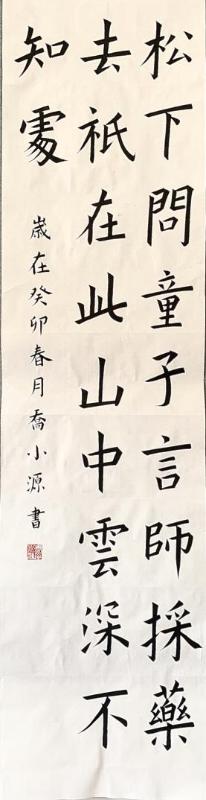 松下問童子言師採藥
去祇在此山中雲深不
知處
歲在癸卯春月喬小源書